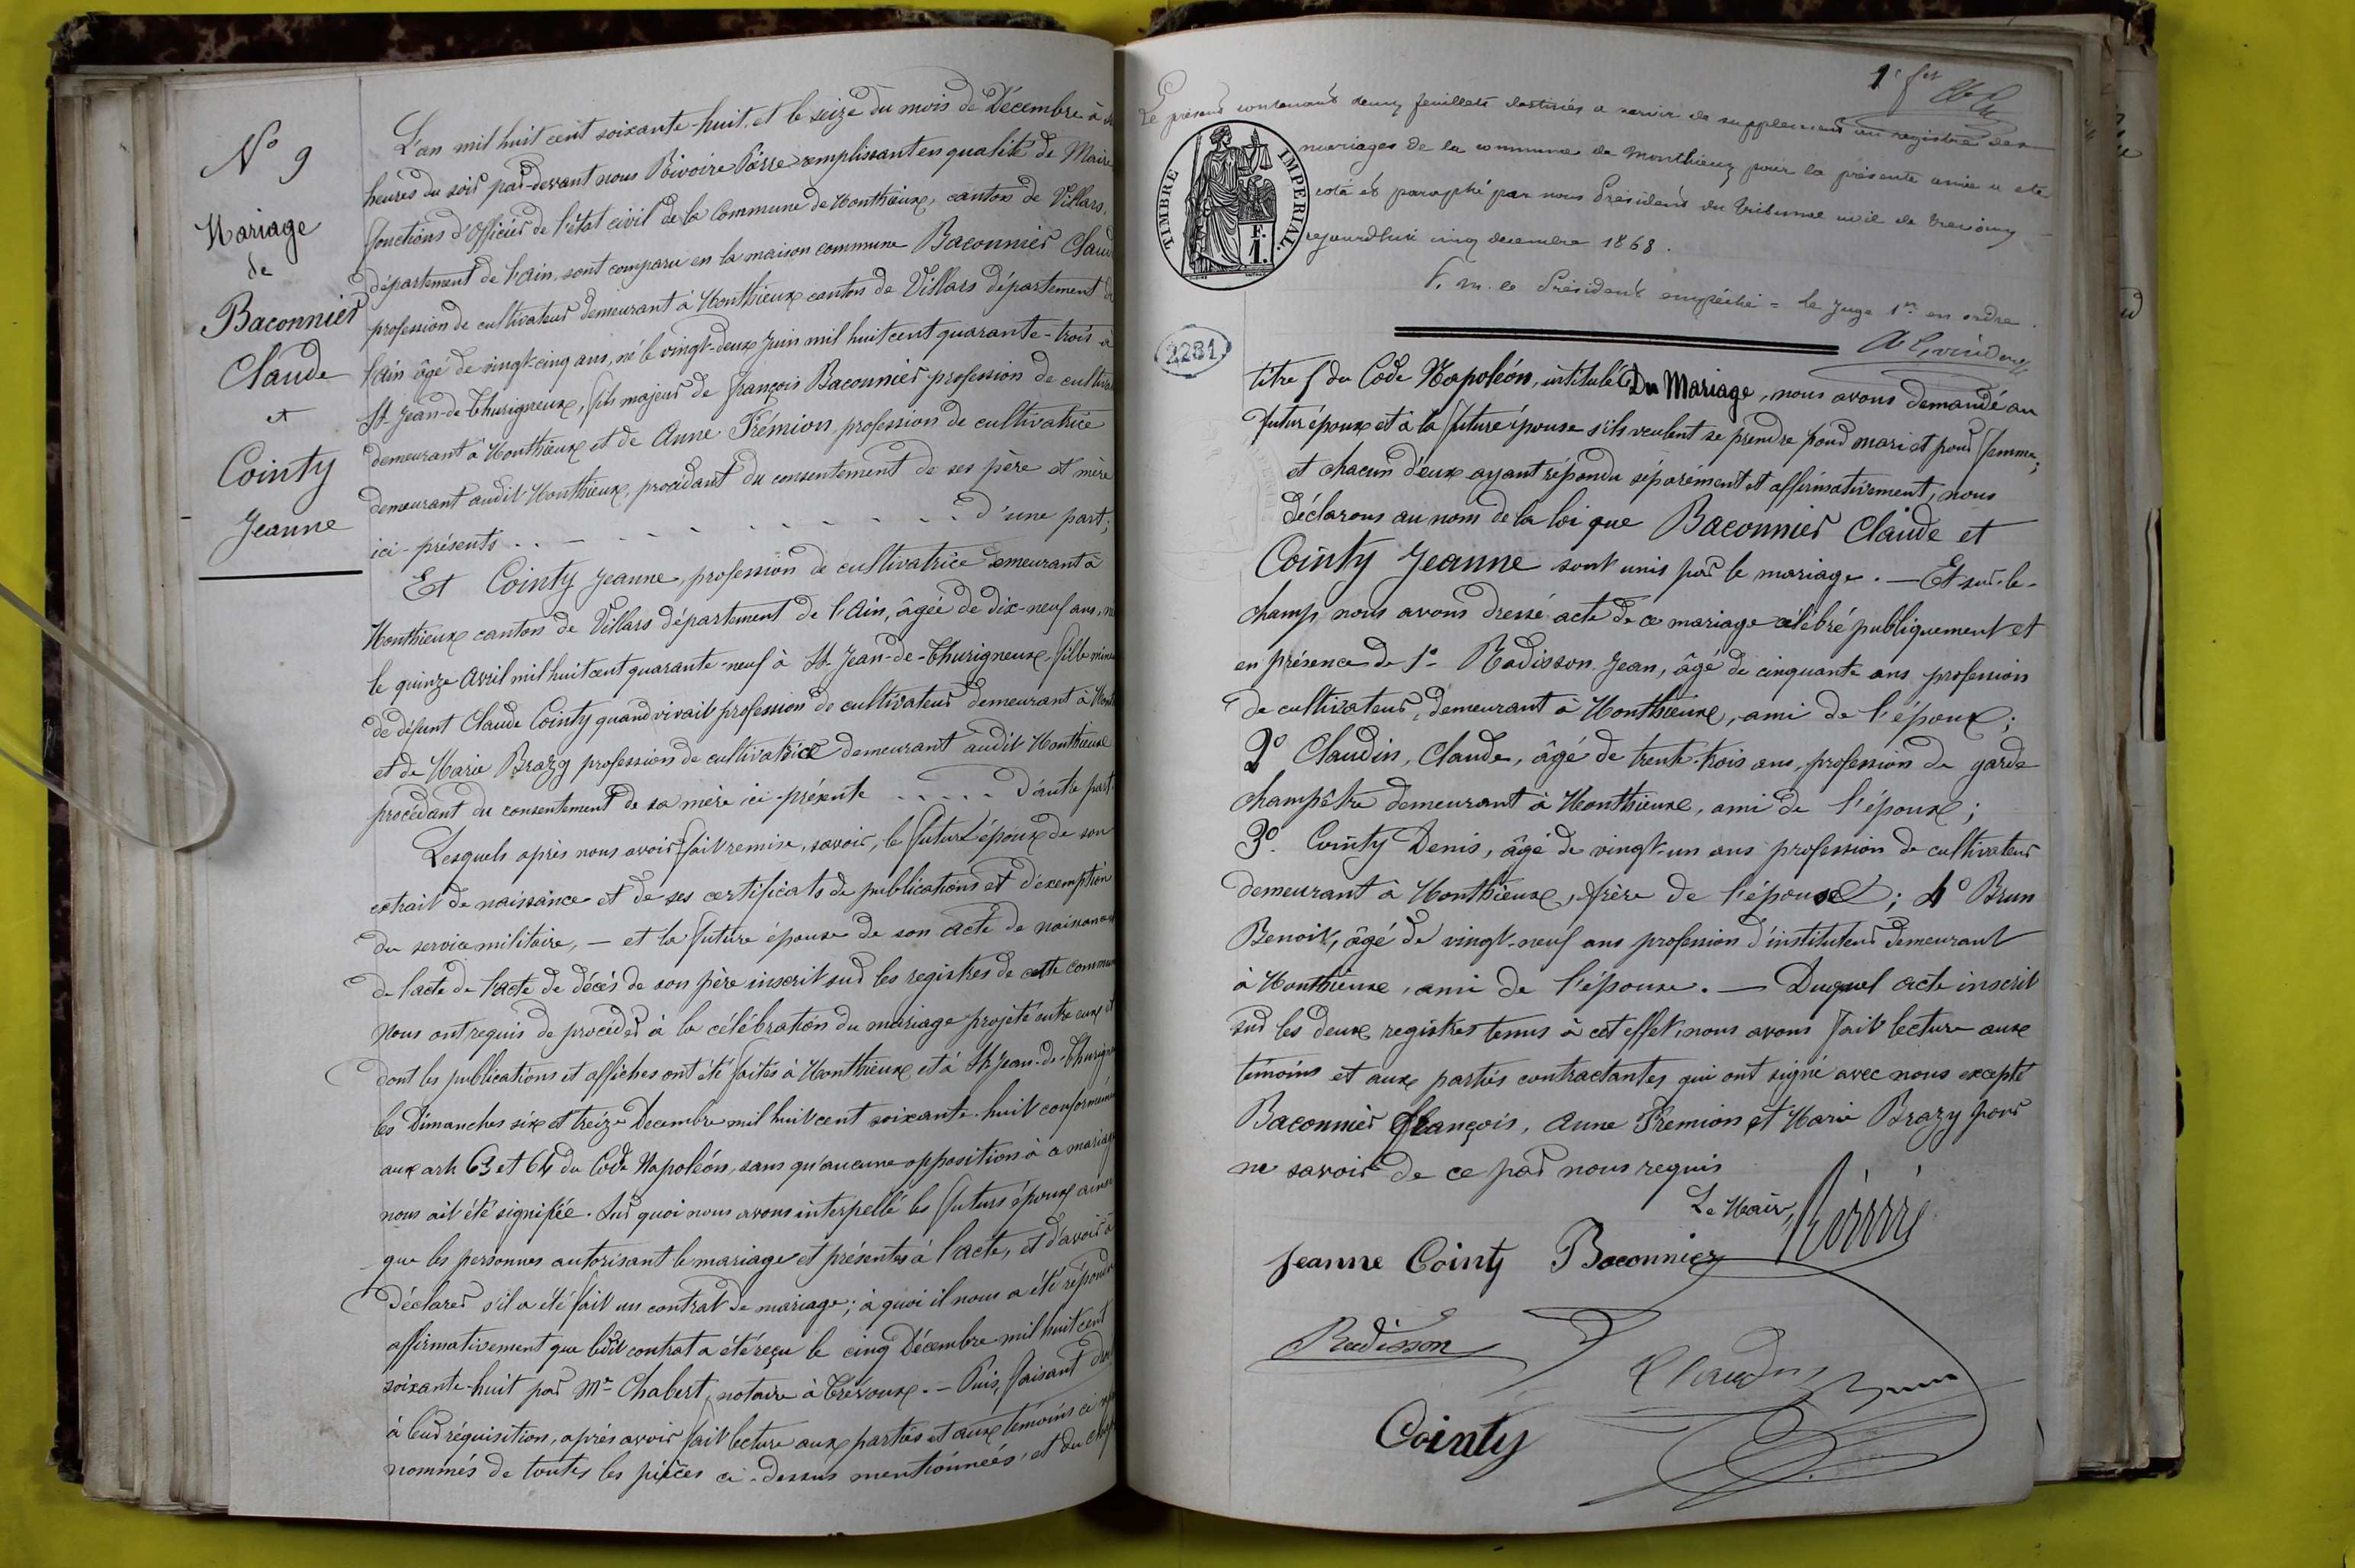 N° 9
Mariage
de
Baconnier
Claude
et
Cointy
Jeanne
L'an mil huit cent soixante-huit, et le seize du mois de Décembre à
heures du soir par-devant nous Rivoire Pierre remplissant en qualité de Maire
fonctions d'Officier de l'état civil de la Commune de Monthieux, canton de Villars,
département de l'Ain, sont comparu en la maison commune Baconnier Claud
profession de cultivateur demeurant à Monthieux canton de Villars département de
l'Ain âgé de vingt-cinq ans, né le vingt-deux Juin mil huit cent quarante-trois à
St Jean-de-Thurigneux, fils majeur de François Baconnier profession de cultiva
demeurant à Monthieux et de Anne Frémion profession de cultivatrice
demeurant audit Monthieux, procédant du consentement de ses père et mère
ici-présents . . . d'une part;
Et Cointy Jeanne, profession de cultivatrice demeurant à
Monthieux canton de Villars département de l'Ain, âgée de dix-neuf ans, née
le quinze Avril mil huit cent quarante-neuf à St Jean-de-Thurigneux, fille mineu
de défunt Claude Cointy quand vivait profession de cultivateur demeurant à Month
et de Marie Brazy profession de cultivatrice demeurant audit Monthieux
procédant du consentement de sa mère ici-présente . . . . . d'autre part.
Lesquels après nous avoir fait remise, savoir, le futur époux de son
extrait de naissance et de ses certificats de publications et d'exemption
du service militaire, — et la future épouse de son acte de naissance
de l'acte de l'acte de décès de son père inscrit sur les registres de cette commun
Nous ont requis de procéder à la célébration du mariage projeté entre eux et
dont les publications et affiches ont été faites à Monthieux et à St Jean-de-Thurigne
les Dimanches six et treize Décembre mil huit cent soixante-huit conformémen
aux art. 63 et 64 du Code Napoléon, sans qu'aucune opposition à ce mariage
nous ait été signifiée. Sur quoi nous avons interpellé les futurs époux ainsi
que les personnes autorisant le mariage et présentes à l'acte, et d'avoir à
déclarer s'il a été fait un contrat de mariage; à quoi il nous a été répondu
affirmativement que ledit contrat a été reçu le cinq Décembre mil huit cent
soixante-huit par Mr Chabert, notaire à Trévoux. — Puis, faisant droit
à leur réquisition, après avoir fait lecture aux parties et aux témoins ci-
nommés de toutes les pièces ci-dessus mentionnées, et du chap
1er fet
Le présent contenant deux feuillets destinés a servir de supplement au registre des
mariages de la commune de Monthieux pour la présente année a été
coté et paraphé par nous Président du Tribunal civil de Trevoux
aujourd'hui cinq decembre 1868.
P. m. le Président empêché = le Juge 1er en ordre.
TIMBRE IMPERIAL.
F.
1.
2281
titre 5 du Code Napoléon, intitulé Du Mariage, nous avons demandé au
futur époux et à la future épouse s'ils veulent se prendre pour mari et pour femme;
et chacun d'eux ayant répondu séparément et affirmativement, nous
déclarons au nom de la loi que Baconnier Claude et
Cointy Jeanne sont unis par le mariage. — Et sur-le-
champ, nous avons dressé acte de ce mariage célébré publiquement et
en présence de 1° Radisson Jean, âgé de cinquante ans profession
de cultivateur, demeurant à Monthieux, ami de l'époux;
2° Claudin, Claude, âgé de trente-trois ans, profession de garde
champêtre demeurant à Monthieux, ami de l'époux;
3° Cointy Denis, âgé de vingt-un ans profession de cultivateur
demeurant à Monthieux, frère de l'épouse; 4° Brun
Benoit, âgé de vingt-neuf ans profession d'instituteur demeurant
à Monthieux, ami de l'épouse. — Duquel acte inscrit
sur les deux registres tenus à cet effet, nous avons fait lecture aux
témoins et aux parties contractantes qui ont signé avec nous excepté
Baconnier François, Anne Fremion et Marie Brazy pour
ne savoir de ce par nous requis
Le Maire, Rivoire
Jeanne Cointy Baconnier
Radisson
Claudin Brun
Cointy